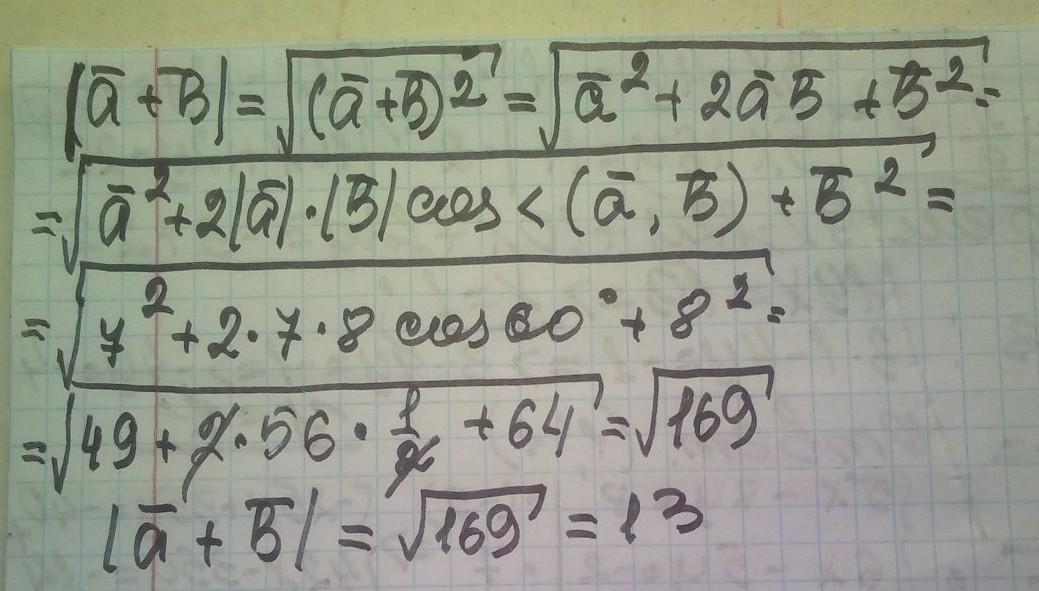 |a̅ + B̅| = √(a̅ + B̅)² = √a̅² + 2a̅ B̅ + B̅² =
= √a̅² + 2|a̅| · |B̅| cos < (a̅, B̅) + B̅² =
= √7² + 2 · 7 · 8 cos 60° + 8² =
= √49 + 2 · 56 · 1/2 + 64 = √169
|a̅ + B̅| = √169 = 13